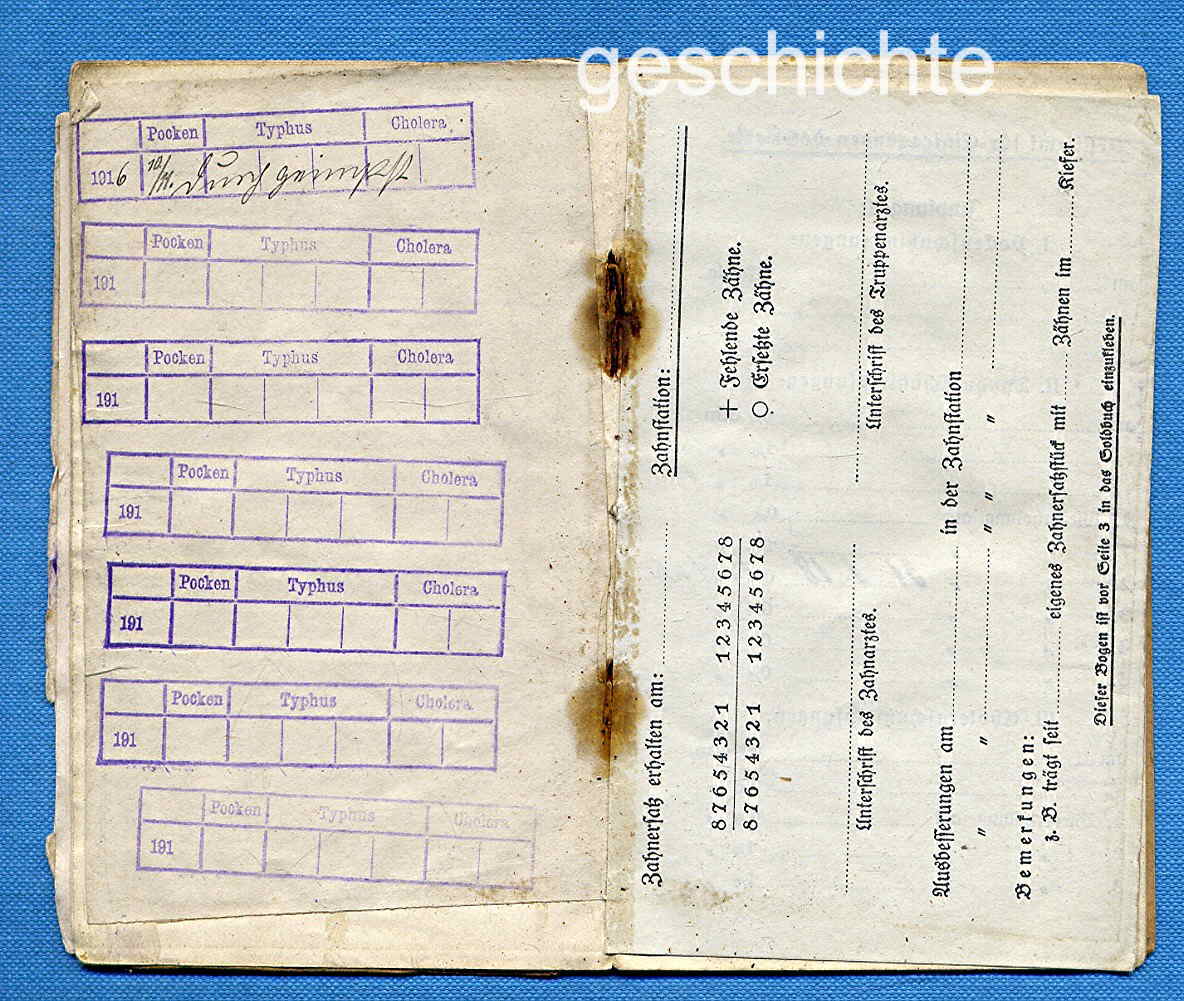 geschichte
Pocken Typhus Cholera
1916 durch geimpft
Pocken Typhus Cholera
191
Pocken Typhus Cholera
191
Pocken Typhus Cholera
191
Pocken Typhus Cholera
191
Pocken Typhus Cholera
191
Pocken Typhus Cholera
191
Zahnersatz erhalten am: Zahnstation:
87654321 12345678 + Fehlende Zähne.
87654321 12345678 ○ Ersetzte Zähne.
Unterschrift des Zahnarztes. Unterschrift des Truppenarztes.
Ausbesserungen am in der Zahnstation
" " " " "
Bemerkungen:
z. B. trägt seit eigenes Zahnersatzstück mit Zähnen im Kiefer.
Dieser Bogen ist vor Seite 3 in das Soldbuch einzukleben.